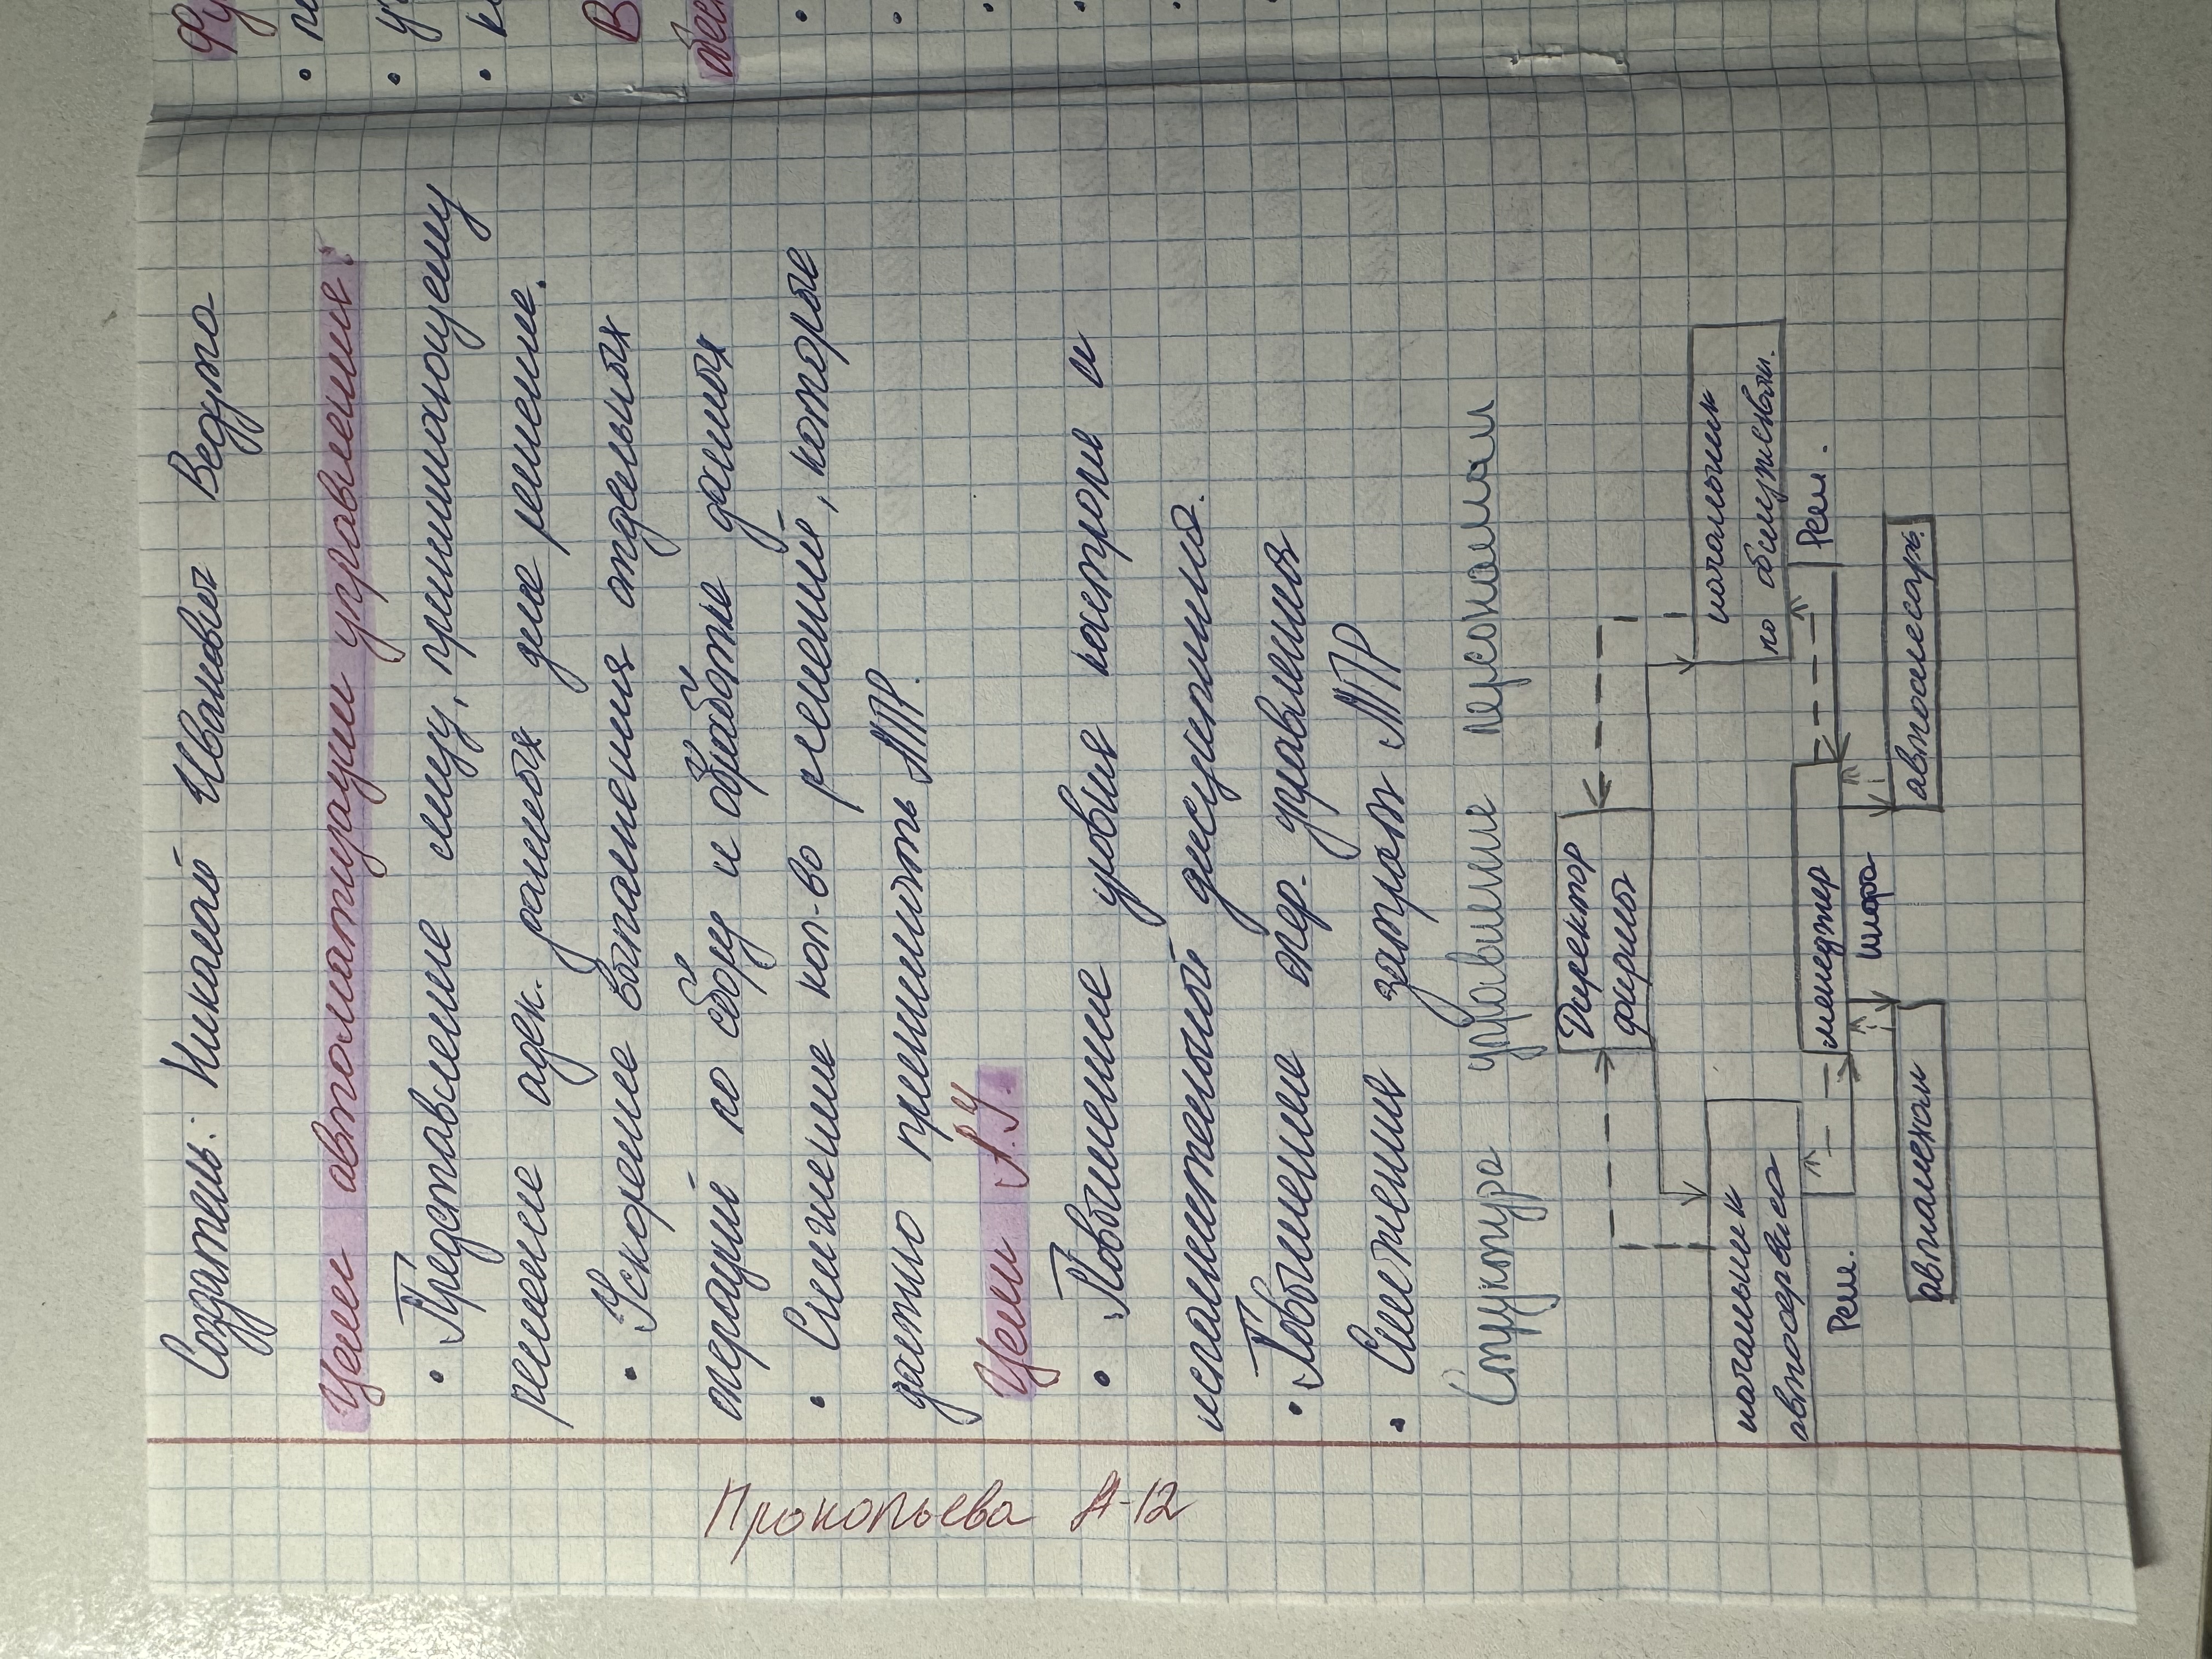 Создатель: Николай Иванович Ведуто
Цели автоматизации управления:
• Представление лицу, принимающему
решение адек. данных для решение.
• Ускорение выполнения отдельных
операций по сбору и обработке данных
• Снижение кол-во решений, которые
должно принимать ЛПР.
Цели А.У.
• Повышение уровня контроля и
исполнительной дисциплины.
• Повышение опер. управления
• Снижения затрат ЛПР
Структура управление персоналом
Директор
фирмы
начальник
автосервиса
начальник
по обслуживан.
Реш.
менеджер
Реш.
инфа
автомехан
автослесарь
Прокопьева А-12